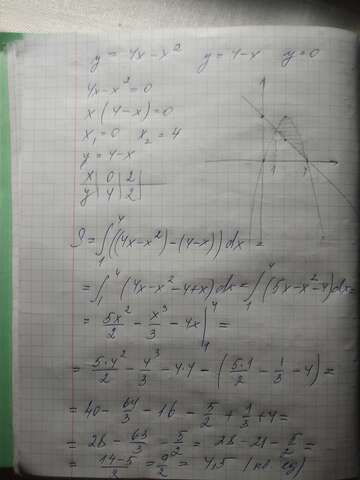 y = 4x-x² y = 4-x y=0
4x-x²=0
x(4-x)=0
x₁=0 x₂=4
y=4-x
x | 0 | 2
y | 4 | 2
1 4
S = ∫₁⁴((4x-x²)-(4-x))dx =
= ∫₁⁴(4x-x²-4+x)dx = ∫₁⁴(5x-x²-4)dx =
= 5x²/2 - x³/3 - 4x |₁⁴ =
= 5·4²/2 - 4³/3 - 4·4 - (5·1/2 - 1/3 - 4) =
= 40 - 64/3 - 16 - 5/2 + 1/3 + 4 =
= 28 - 63/3 - 5/2 = 28 - 21 - 5/2 =
= 14-5/2 = 9/2 = 4,5 (кв. ед)